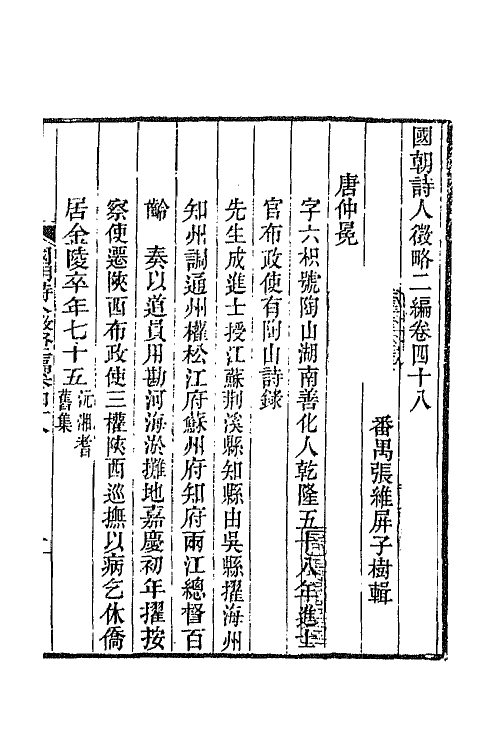 國朝詩人徵略二編卷四十八
番禺張維屏子樹輯
唐仲冕
字六枳號陶山湖南善化人乾隆五十八年進士
官布政使有陶山詩錄
先生成進士授江蘇荆溪縣知縣由吳縣擢海州
知州調通州權松江府蘇州府知府兩江總督百
齡　奏以道員用勘河海淤攤地嘉慶初年擢按
察使遷陝西布政使三權陝西巡撫以病乞休僑
居金陵卒年七十五沅湘耆
舊集